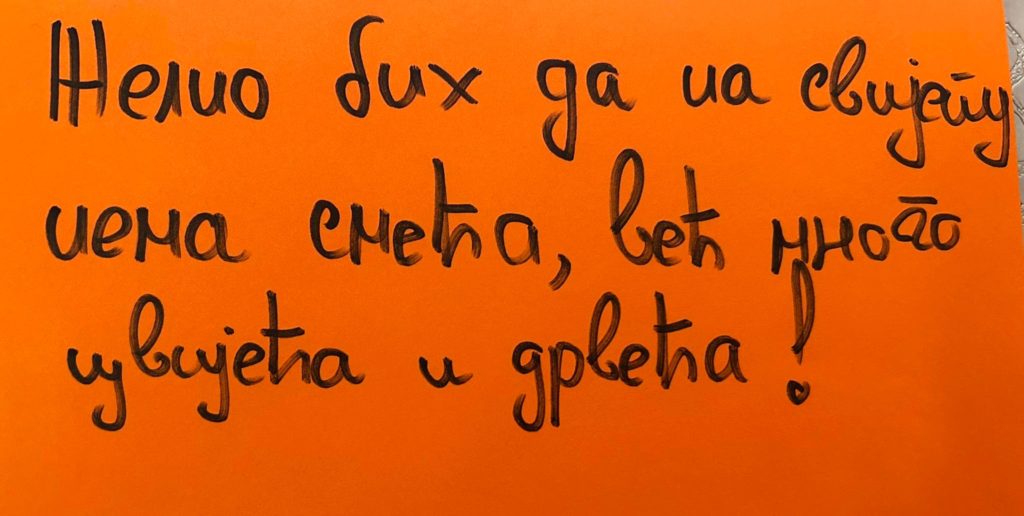 Желио бих да на свијету
нема смећа, већ много
цвијећа и дрвећа!